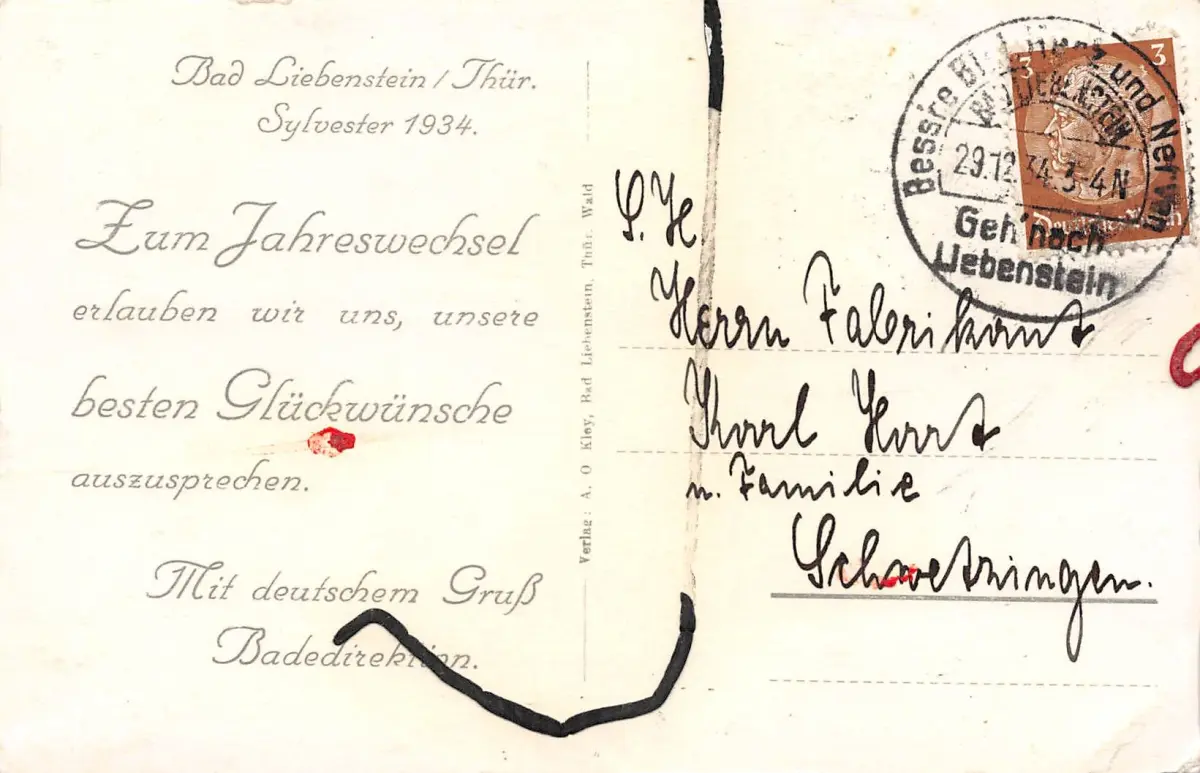 Bad Liebenstein / Thür.
Sylvester 1934.
Zum Jahreswechsel
erlauben wir uns, unsere
besten Glückwünsche
auszusprechen.
Mit deutschem Gruß
Badedirektion.
Verlag: A. O Kley, Bad Liebenstein, Thür. Wald
S. H.
Herrn Fabrikant
Karl Hart
u. Familie
Schwetzingen.
3 3
Deutsches Reich
Bessre Blut und Nerven
BAD LIEBENSTEIN
29.12.34.3-4N
Geh' nach
Liebenstein